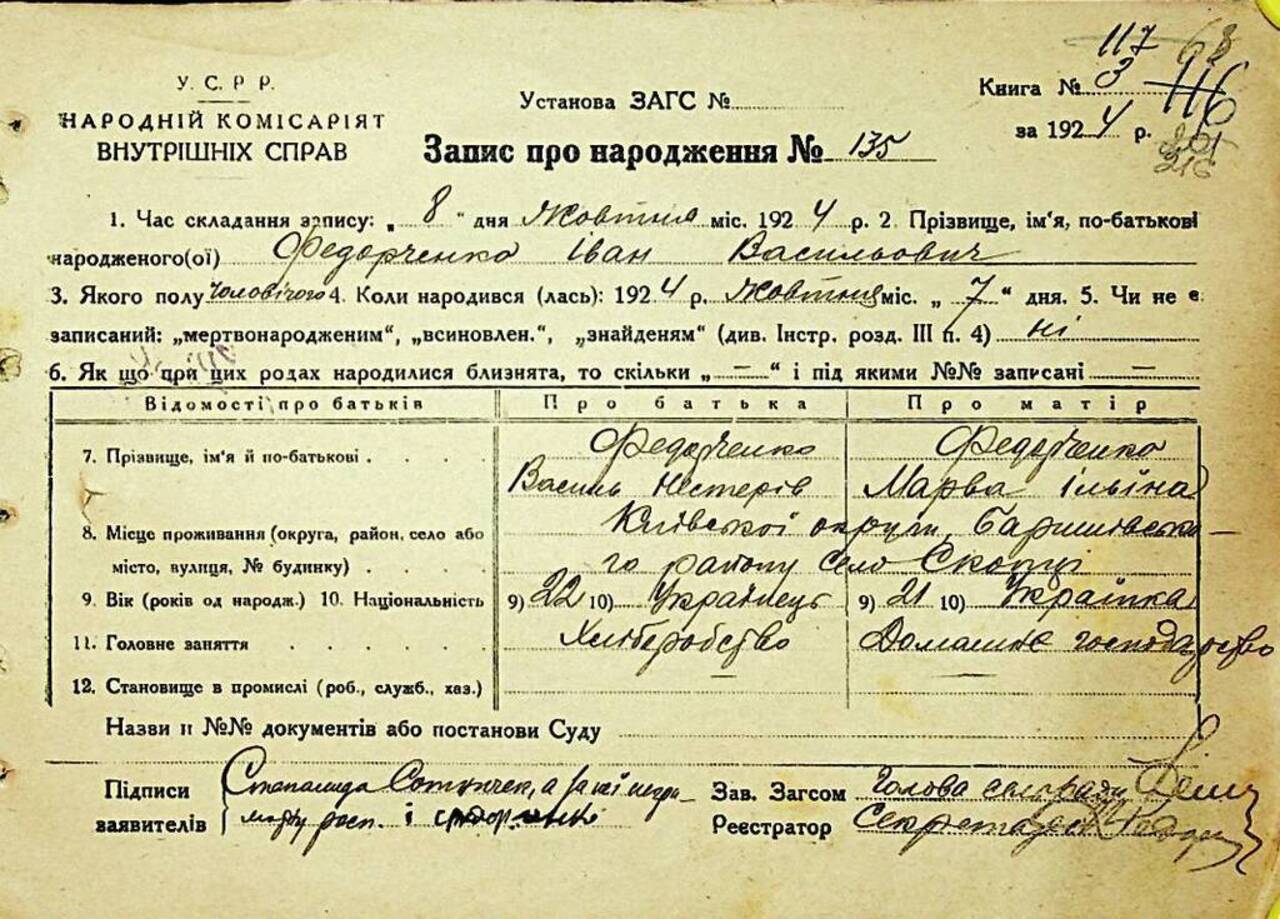 117 68
У. С. Р Р.
Книга № 3 116
Установа ЗАГС №
НАРОДНІЙ КОМІСАРІЯТ
за 1924 р.
ВНУТРІШНІХ СПРАВ
Запис про народження № 135
216
1. Час складання запису: „ 8 " дня Жовтня міс. 1924 р. 2. Прізвище, ім'я, по-батькові
народженого(ої) Федорченко Іван Васильович
3. Якого полу Чоловічого 4. Коли народився (лась): 1924 р. Жовтня міс. „ 7 " дня. 5. Чи не є
записаний: „мертвонародженим", „всиновлен.", „знайденям" (див. Інстр. розд. III п. 4) ні
6. Як що при цих родах народилися близнята, то скільки „ — " і під якими №№ записані —
Відомості про батьків Про батька Про матір
7. Прізвище, ім'я й по-батькові . . . . Федорченко Федорченко
Василь Нестерів Марва Ільїна
8. Місце проживання (округа, район, село або Київської округи, Баришівсько-
місто, вулиця, № будинку) . . . . го району село Скопці
9. Вік (років од народж.) 10. Національність 9) 22 10) Українець 9) 21 10) Українка
11. Головне заняття . . . . . . Хліборобство Домашнє господарство
12. Становище в промислі (роб., служб., хаз.) — —
Назви й №№ документів або постанови Суду
Підписи Степанида а за неї Зав. Загсом Голова сельради
заявителів розп. і Реєстратор Секретарь